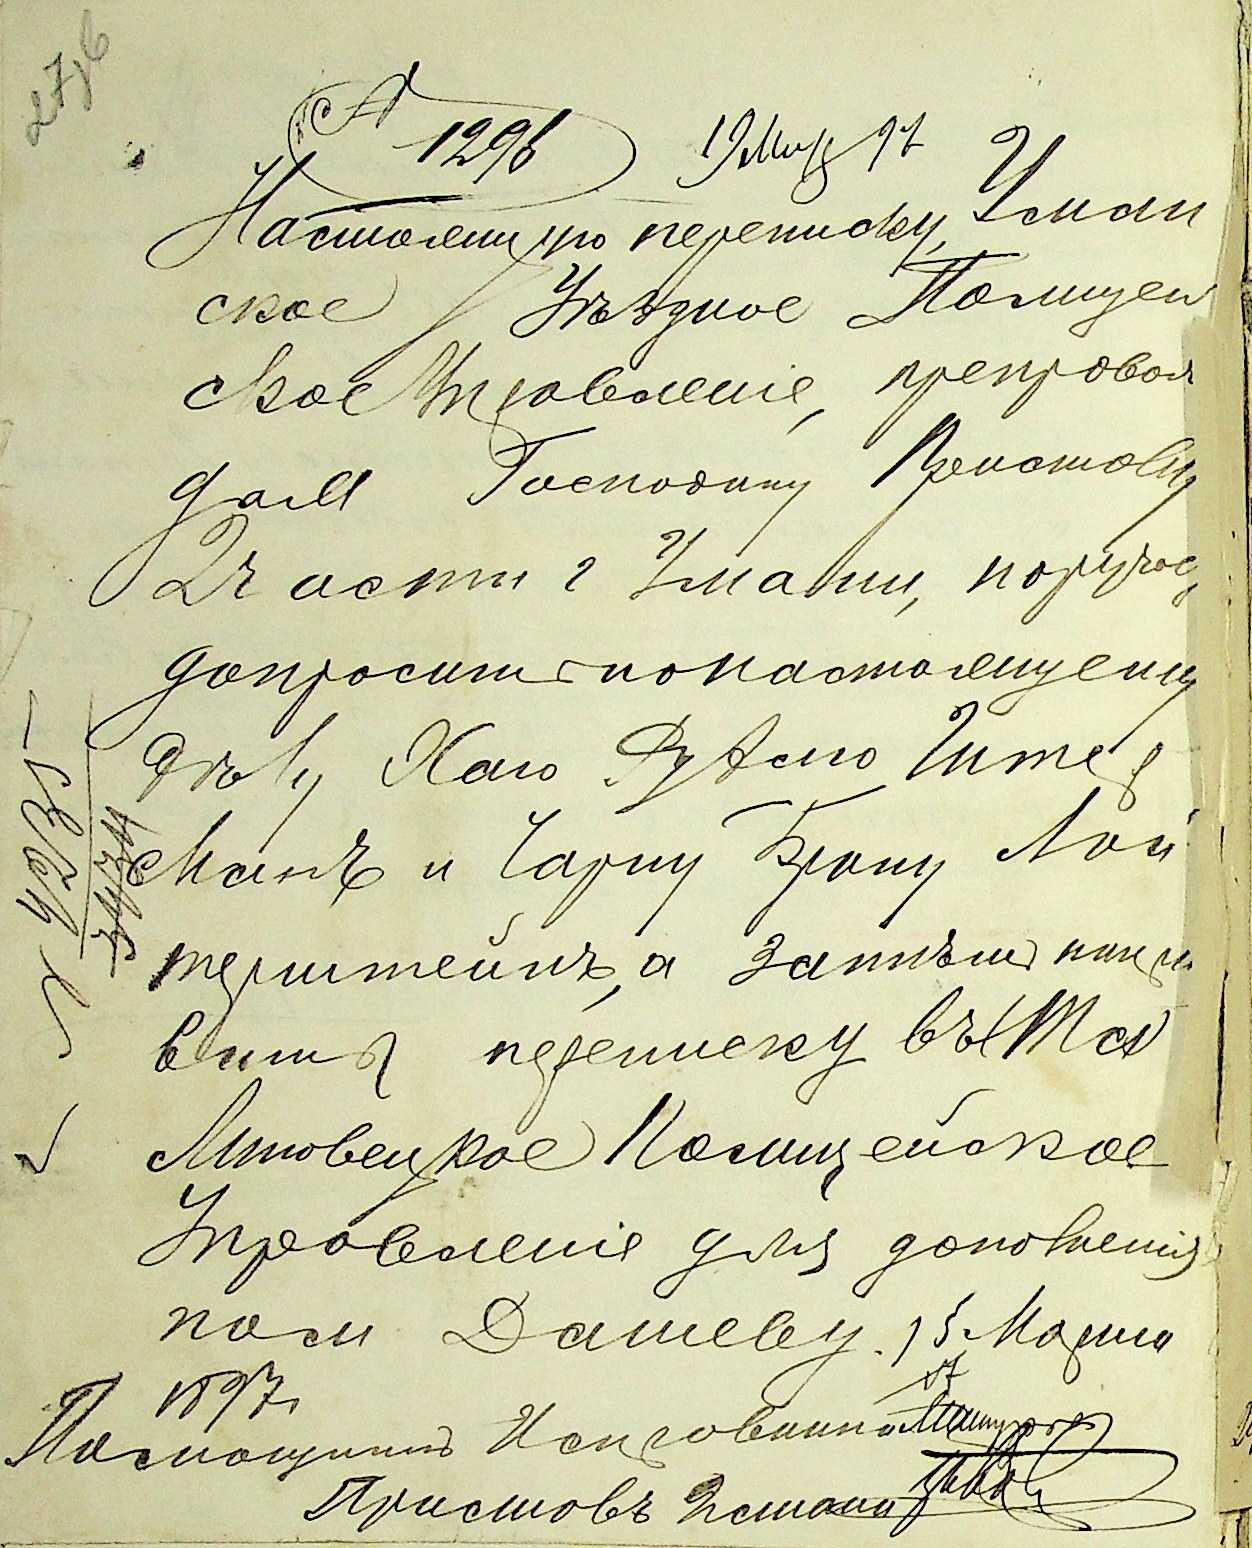 27
1296 19 Мар 97
Настоящую переписку, Уман
ское Уѣздное Полицей
ское Управленіе, препровож
дая Господину Приставу
2 части г Умани, поручаетъ
допросить по настоящему
дѣлу Хаю Рухлю Штер
манъ и Чарну Брану Лой
терштейнъ, а затѣмъ напра
вить переписку въ
Липовецкое Полицейское
Управленіе для дополненія
по м Дашеву. 15 Марта
1897г
Помощникъ Исправника
Приставъ 2 стана
4235